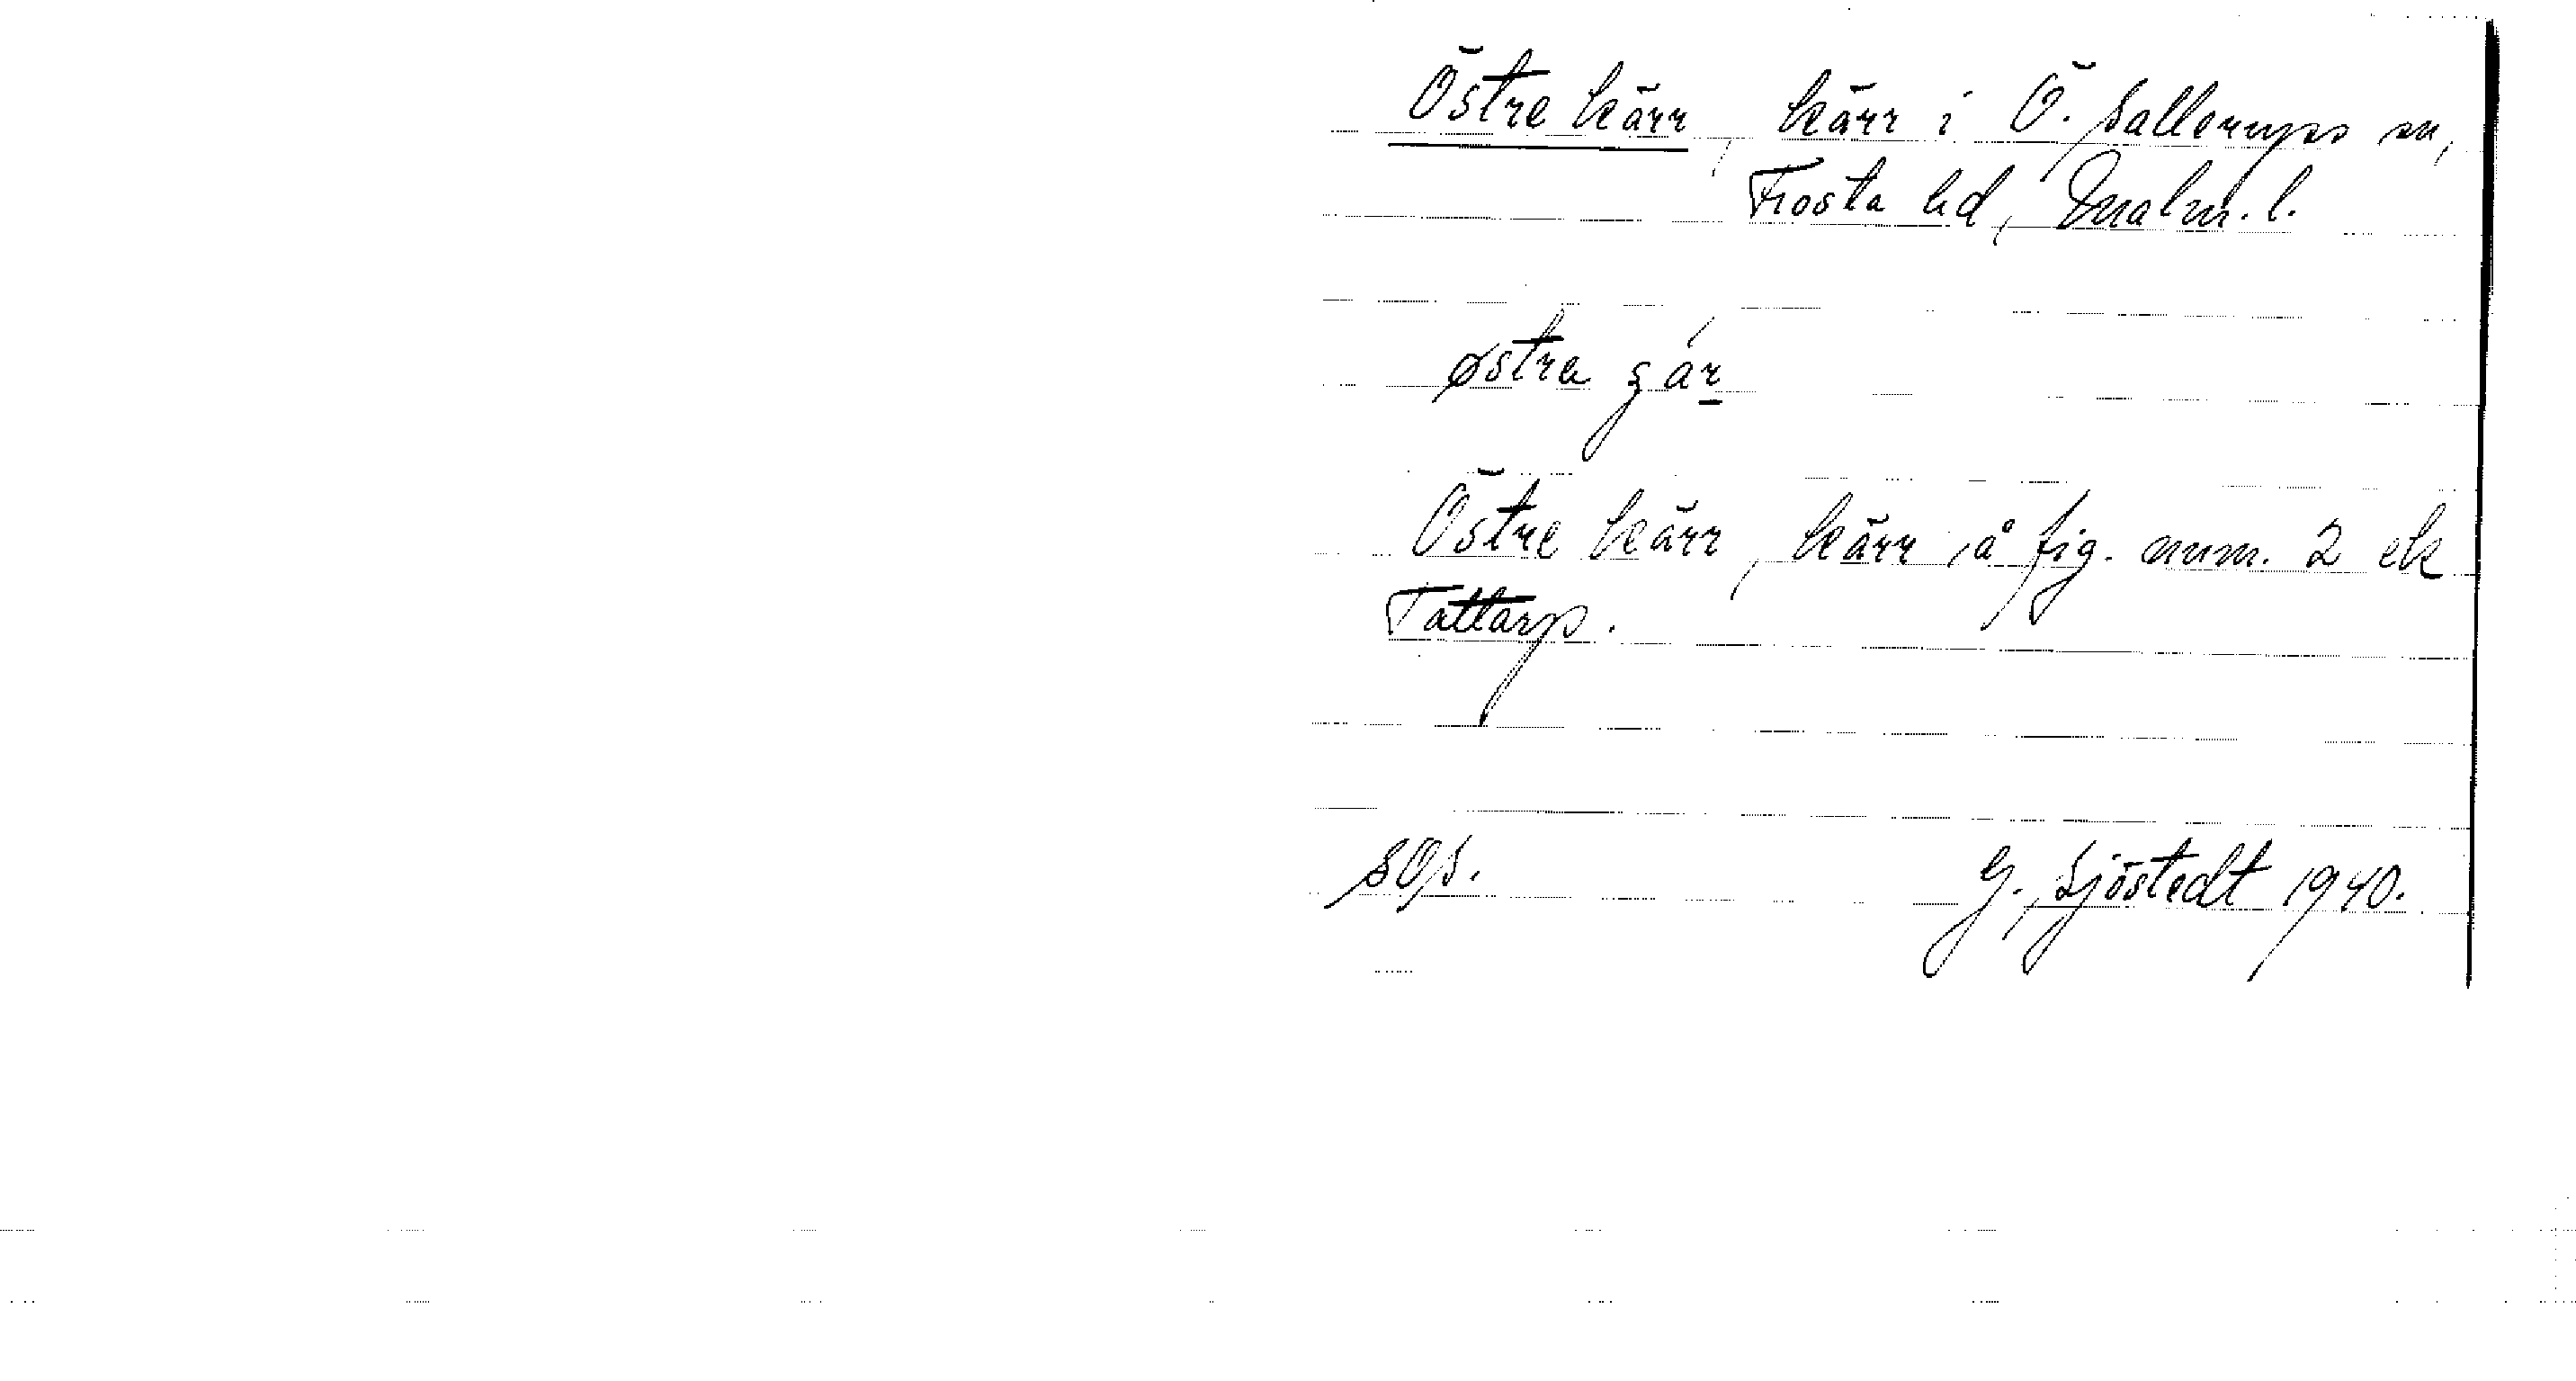 Östre kärr, kärr i Ö. Sallerups sn,
Frosta hd, Malm. l.
østra ʒár
Östre kärr, kärr å fig. num. 2 ek
Tattarp.
SOS.
G. Sjöstedt 1940.